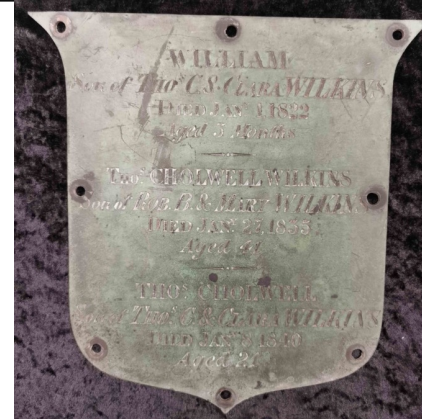 WILLIAM
Son of Thos. C. & CLARA WILKINS
DIED JAN. 1822
Aged 3 Months
Thos. CHOLWELL WILKINS
Son of Rob. B. & MARY WILKINS
DIED JAN. 27, 1833
Aged 41
THOS. CHOLWELL
Son of Thos. C. & CLARA WILKINS
DIED JAN.
Aged 21